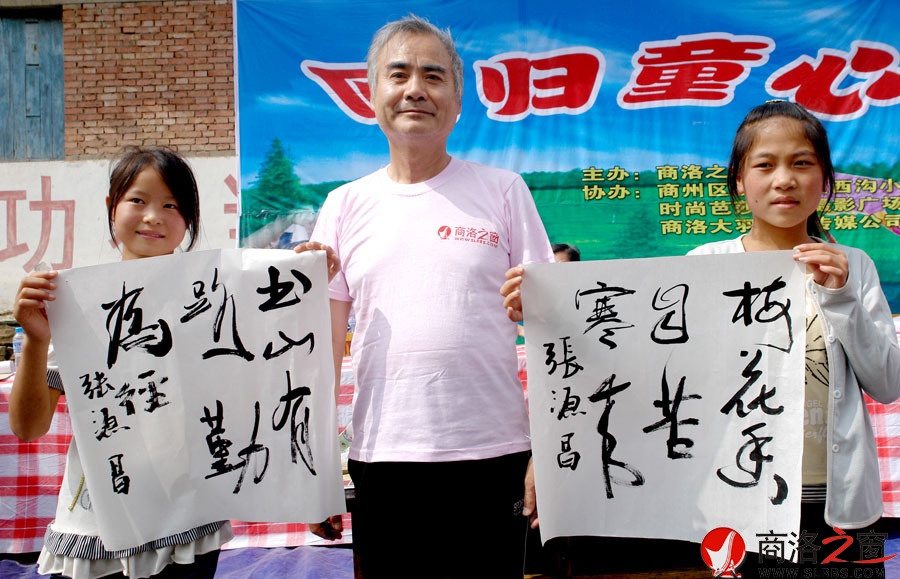 回归童心
主办：商洛之
协办：商州区 西沟小
时尚芭莎 影广场
商洛大羽 传媒公司
功
商洛之窗
WWW.SLRBS.COM
书山有
路勤
為徑
張源昌
梅花香
自苦
寒来
張源昌
商洛之窗
WWW.SLRBS.COM